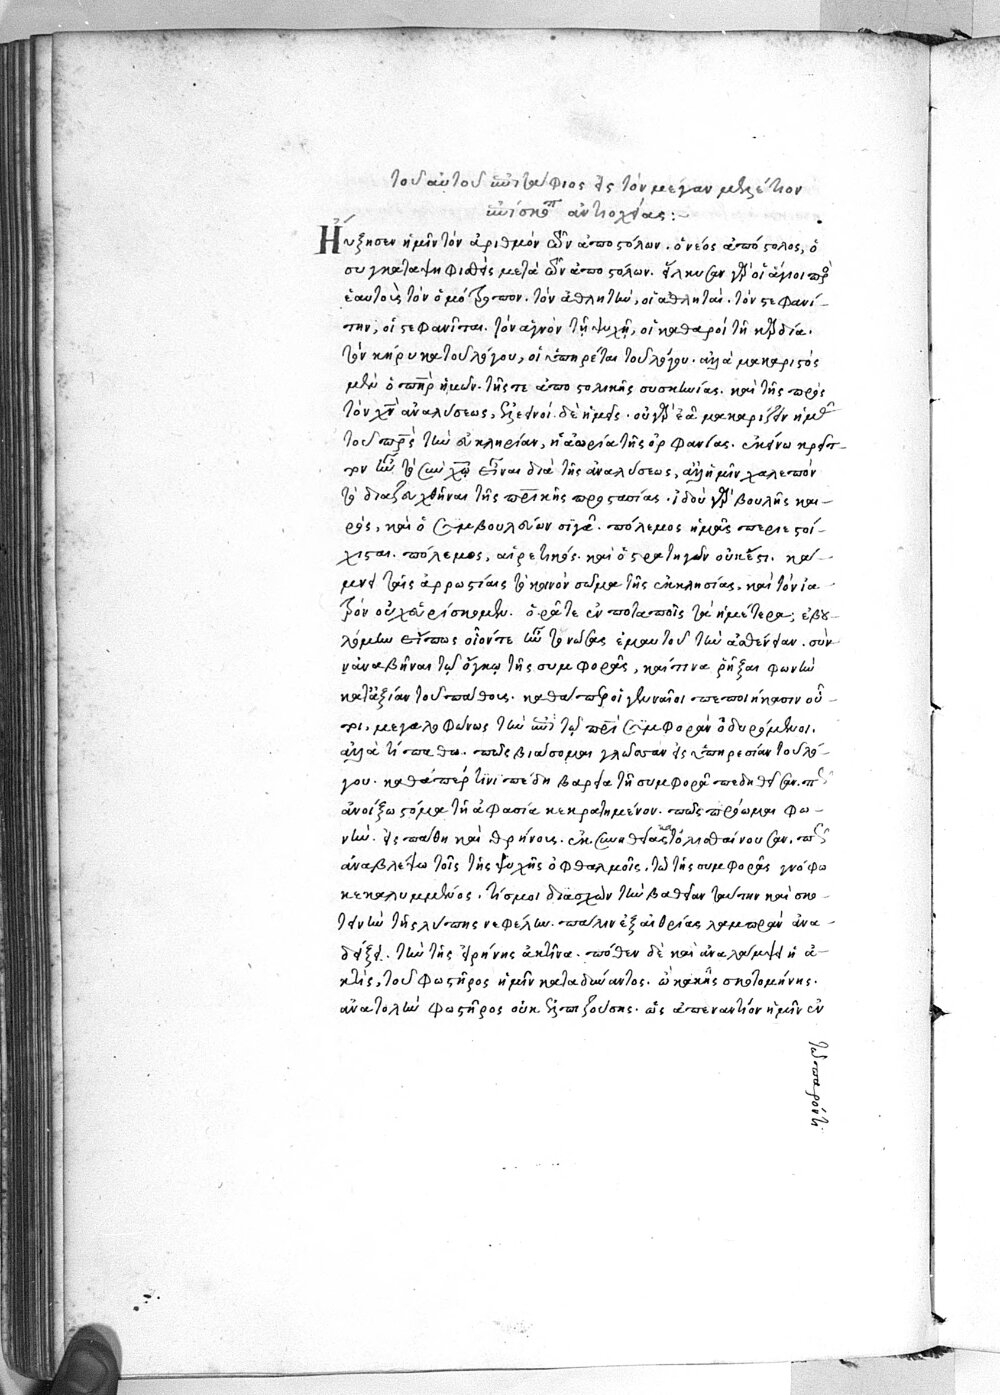 τοῦ αὐτοῦ ἐπιτάφιος εἰς τὸν μέγαν μελέτιον
ἐπίσκοπ ἀντιοχείας :~
Ηὔξησεν ἡμῖν τὸν ἀριθμὸν τῶν ἀποστόλων. ὁ νέος ἀπόστολος, ὁ
συγκαταψηφισθεὶς μετὰ τῶν ἀποστόλων. εἵλκυσαν γὰρ οἱ ἅγιοι πρὸς
ἑαυτοὺς τὸν ὁμότροπον. τὸν ἀθλητὴν, οἱ ἀθληταί. τὸν στεφανί-
την, οἱ στεφανῖται. τὸν ἁγνὸν τῇ ψυχῇ, οἱ καθαροὶ τῇ καρδία.
τὸν κήρυκα τοῦ λόγου, οἱ ὑπηρέται τοῦ λόγου. ἀλλὰ μακαριστὸς
μὲν ὁ πηρ ἡμῶν. τῆς τε ἀποστολικῆς συσκηνίας. καὶ τῆς πρὸς
τὸν χν ἀναλύσεως, ἐλεεινοὶ δὲ ἡμεῖς. οὐ γὰρ ἐᾷ μακαρίζειν ἡμᾶς
τοῦ πρς τὴν εὐκληρίαν, ἡ ἀωρία τῆς ὀρφανίας. ἐκείνω κρεῖτ-
τον ἦν τὸ σὺν χω εἶναι διὰ τῆς ἀναλύσεως, ἀλλ' ἡμῖν χαλεπὸν
τὸ διαζευχθῆναι τῆς πρικῆς προστασίας. ἰδοὺ γὰρ βουλῆς και-
ρὸς, καὶ ὁ συμβουλεύων σιγᾷ. πόλεμος ἡμᾶς περιεστοί-
χισται. πόλεμος, αἱρετικός. καὶ ὁ στρατηγῶν οὐκ ἔστι. κά-
μνει ταῖς ἀρρωστίαις τὸ κοινὸν σῶμα τῆς ἐκκλησίας. καὶ τὸν ἰα-
τρὸν οὐχ εὑρίσκομεν. ὁρᾶτε ἐν ποταποῖς τὰ ἡμέτερα; ἐβου-
λόμην εἴ πως οἷόν τε ἦν τονώσας ἐμαυτοῦ τὴν ἀσθένειαν. συν-
αναβῆναι τῷ ὄγκῳ τῆς συμφορᾶς, καί τινα ῥῆξαι φωνὴν
κατ' ἀξίαν τοῦ πάθους. καθάπερ οἱ γενναῖοι πεποιήκασιν οὗ-
τοι, μεγαλοφώνως τὴν ἐπὶ τῷ πρὶ συμφορὰν ὀδυρόμενοι.
ἀλλὰ τί πάθω. πῶς βιάσομαι γλῶσσαν εἰς ὑπηρεσίαν τοῦ λό-
γου. καθάπερ τινὶ πέδη βαρεῖα τῇ συμφορᾷ πεδηθεῖσαν. πῶς
ἀνοίξω στόμα τῇ ἀφασία κεκρατημένον. πῶς πρόωμαι φω-
νήν. εἰς πάθη καὶ θρήνους. ἐκ συνηθείας κατολισθαίνουσαν. πῶς
ἀναβλέψω τοῖς τῆς ψυχῆς ὀφθαλμοῖς. τῷ τῆς συμφορᾶς γνόφω
κεκαλυμμένος. τίς μοι διασχὼν τὴν βαθεῖαν ταύτην καὶ σκο-
τεινὴν τῆς λύπης νεφέλην. πάλιν ἐξ αἰθρίας λαμπρὰν ἀνα-
δείξει. τὴν τῆς εἰρήνης ἀκτῖνα. πόθεν δὲ καὶ ἀναλάμψει ἡ ἀ-
κτὶς, τοῦ φωστῆρος ἡμῖν καταδύναντος. ὦ κακῆς σκοτομήνης.
ἀνατολὴν φωστῆρος οὐκ ἐλπιζούσης. ὡς ἀπεναντίον ἡμῖν ἐν
τῷ παρόντι